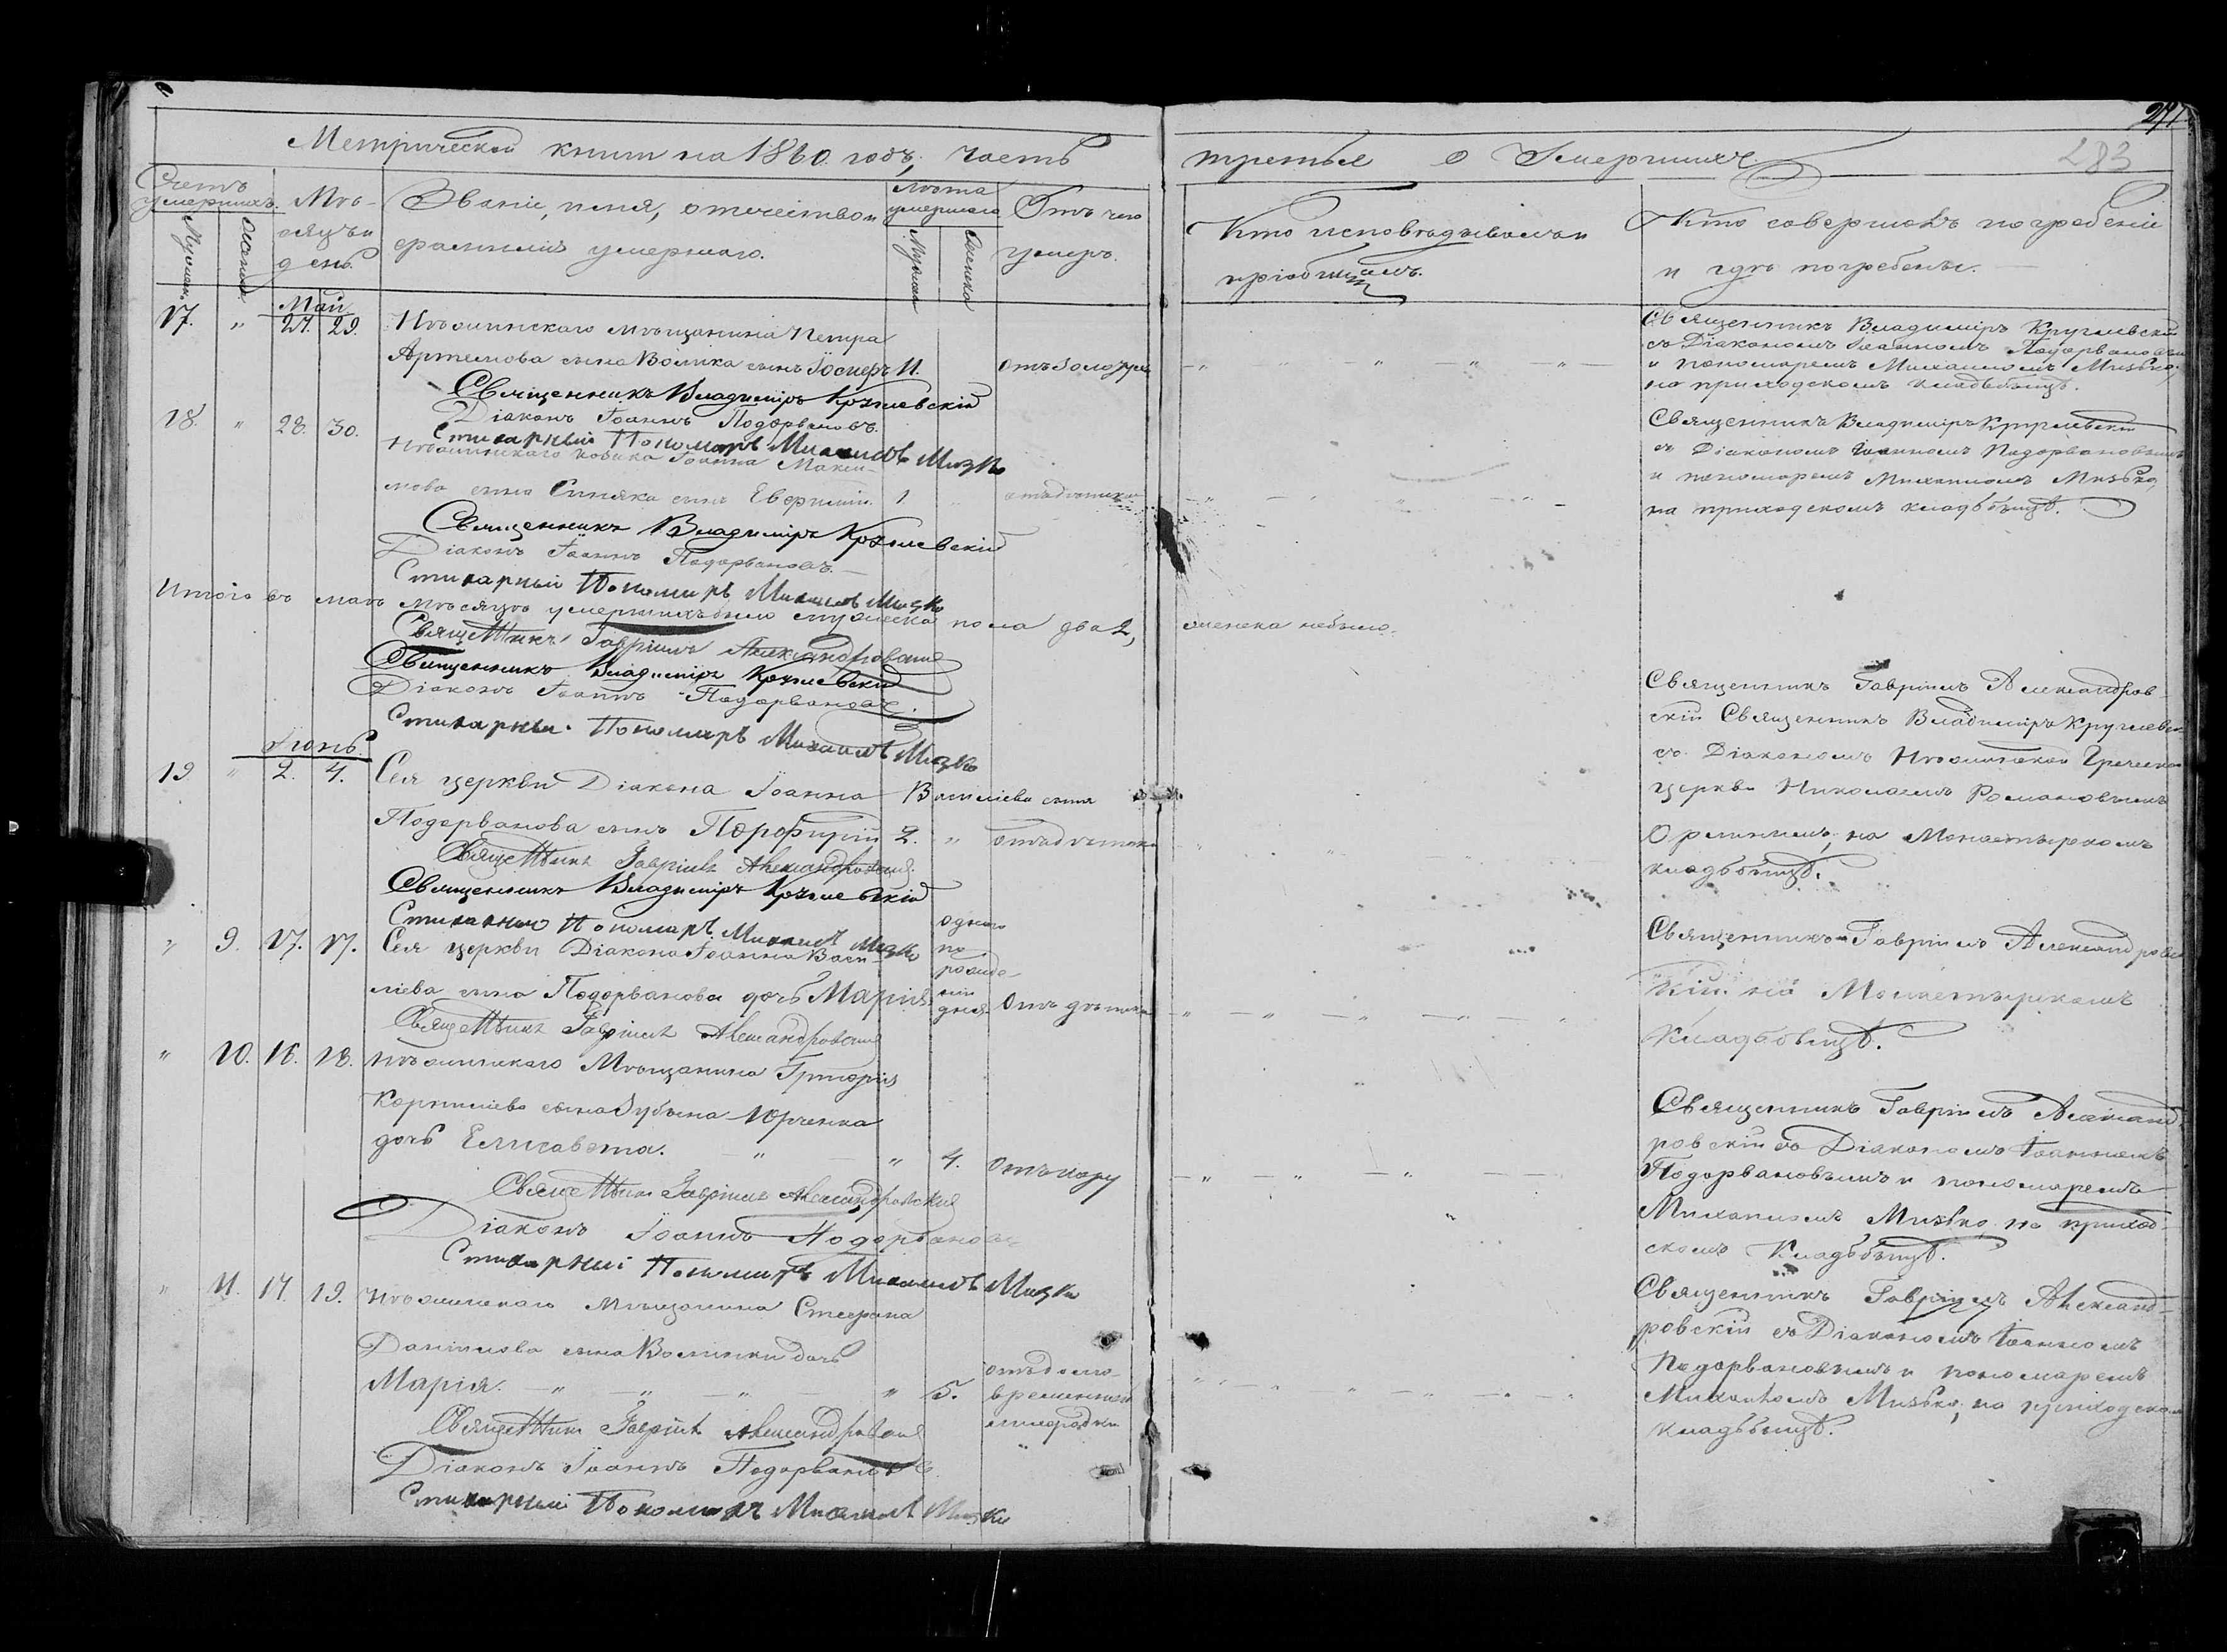 277
283
Метрической книги на 1860. годъ, часть третья о Умершихъ.
Счетъ умершихъ.
Мужеск.
Женск.
Мѣсяцъ и день.
Званіе, имя, отечество и фамилія умершаго.
Лѣта умершаго
Мужеск
Женска
Отъ чего умеръ.
Кто исповѣдывалъ и пріобщалъ.
Кто совершалъ погребеніе и гдѣ погребены.
Май
17. " 27. 29. Нѣжинскаго мѣщанина Петра
Артемова сына Волика сынъ Іосифъ 11.
Священникъ Владиміръ Круглевскій
Діаконъ Іоаннъ Подорвановъ.
Стихарный Пономарь Михаилъ Мизко
Священникъ Владиміръ Круглевскій
съ Діакономъ Іоанномъ Подорвановымъ
и пономаремъ Михаиломъ Мизько,
на приходскомъ кладбищѣ.
18. " 28. 30. Нѣжинскаго Іоанна Макси-
мова сына Синяка сынъ Евфимій. 1
Священникъ Владиміръ Круглевскій
Діаконъ Іоаннъ Подорвановъ.
Стихарный Пономарь Михаилъ Мизко
Священникъ Владиміръ Круглевскій
съ Діакономъ Іоанномъ Подорвановымъ
и пономаремъ Михаиломъ Мизько,
на приходскомъ кладбищѣ.
Итого въ маѣ мѣсяцѣ умершихъ было мужеска пола два 2, женска небыло.
Священникъ Гавріилъ Александровскій
Священникъ Владиміръ Круглевскій
Діаконъ Іоаннъ Подорвановъ.
Стихарный Пономарь Михаилъ Мизко
Іюнь.
19 " 2. 4. Сея церкви Діакона Іоанна Василіева сына
Подорванова сынъ Порфирій 2. "
Священникъ Гавріилъ Александровскій
Священникъ Владиміръ Круглевскій
Стихарный Пономарь Михаилъ Мизко
Священникъ Гавріилъ Александров-
скій Священникъ Владиміръ Круглевск
съ Діакономъ Нѣжинской Греческой
церкви Николаемъ Романовымъ
на Монастырскомъ
кладбищѣ.
" 9. 17. 17. Сея церкви Діакона Іоанна Васи-
ліева сына Подорванова дочь Марія
одного по рожденіи дня
Отъ
Священникъ Гавріилъ Александровскій
Священникъ Гавріилъ Александровс
кій на Монастырскомъ
Кладбищѣ.
" 10. 16. 18. Нѣжинскаго Мѣщанина Григорія
Корниліева сына Юрченка
дочь Елисавета. " " 4. Отъ кору
Священникъ Гавріилъ Александровскій
Діаконъ Іоаннъ Подорвановъ
Стихарный Пономарь Михаилъ Мизко
Священникъ Гавріилъ Александ
ровскій съ Діакономъ Іоанномъ
Подорвановымъ и пономаремъ
Михаиломъ Мизько на приход-
скомъ Кладбищѣ.
" 11. 17. 19. Нѣжинскаго Мѣщанина Стефана
Даніилова сына дочь
Марія. " " " " 5.
лихорадки
Священникъ Гавріилъ Александровскій
Діаконъ Іоаннъ Подорвановъ
Стихарный Пономарь Михаилъ Мизко
Священникъ Гавріилъ Александ-
ровскій съ Діакономъ Іоанномъ
Подорвановымъ и пономаремъ
Михаиломъ Мизько, на приходском
кладбищѣ.